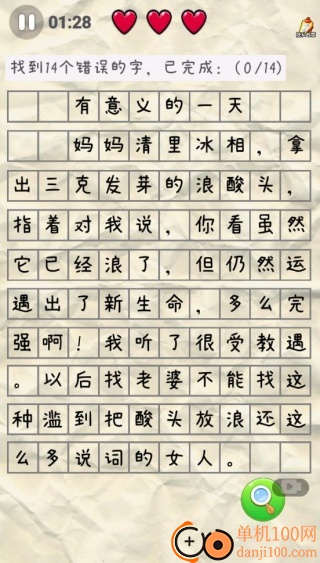 01:28
找到14个错误的字，已完成：(0/14)
有意义的一天
妈妈清里冰相，拿
出三克发芽的浪酸头，
指着对我说，你看虽然
它已经浪了，但仍然运
遇出了新生命，多么完
强啊！我听了很受教遇
。以后找老婆不能找这
种滥到把酸头放浪还这
么多说词的女人。
单机100网
danji100.com